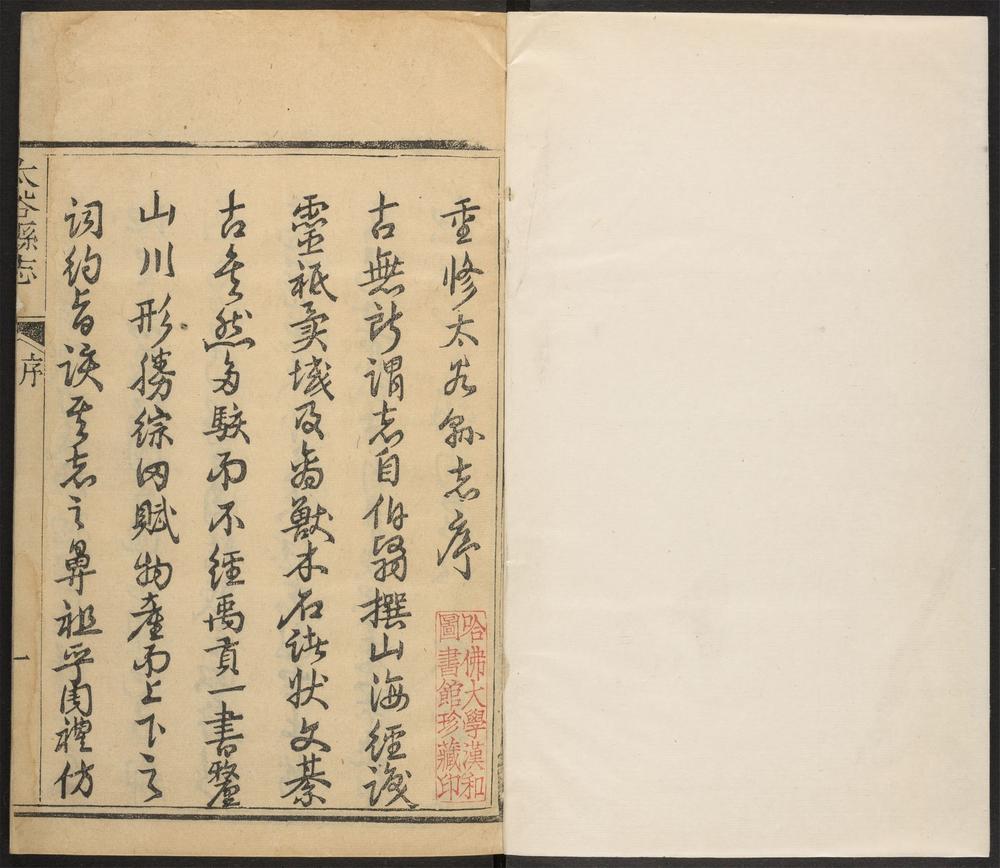 重修太谷縣志序
哈佛大學漢和
圖書館珍藏印
古無所謂志自伯翳撰山海經識
靈祇異域及禽獸木石諸狀文綦
古矣然多駭而不經禹貢一書釐
山川形勝綜田賦物產而上下之
詞約旨該其志之鼻祖乎周禮仿
太谷縣志
序
一